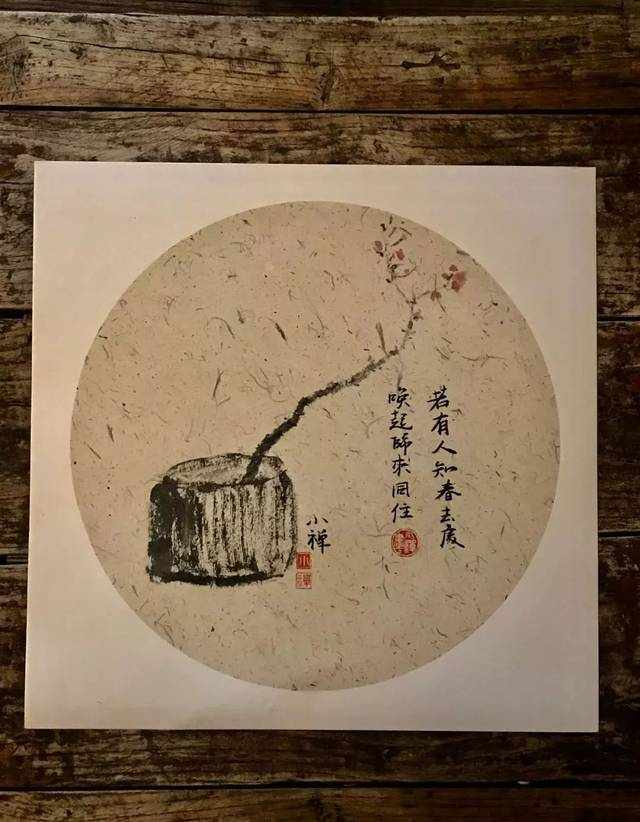 若有人知春去處
喚起歸來同住
小禅